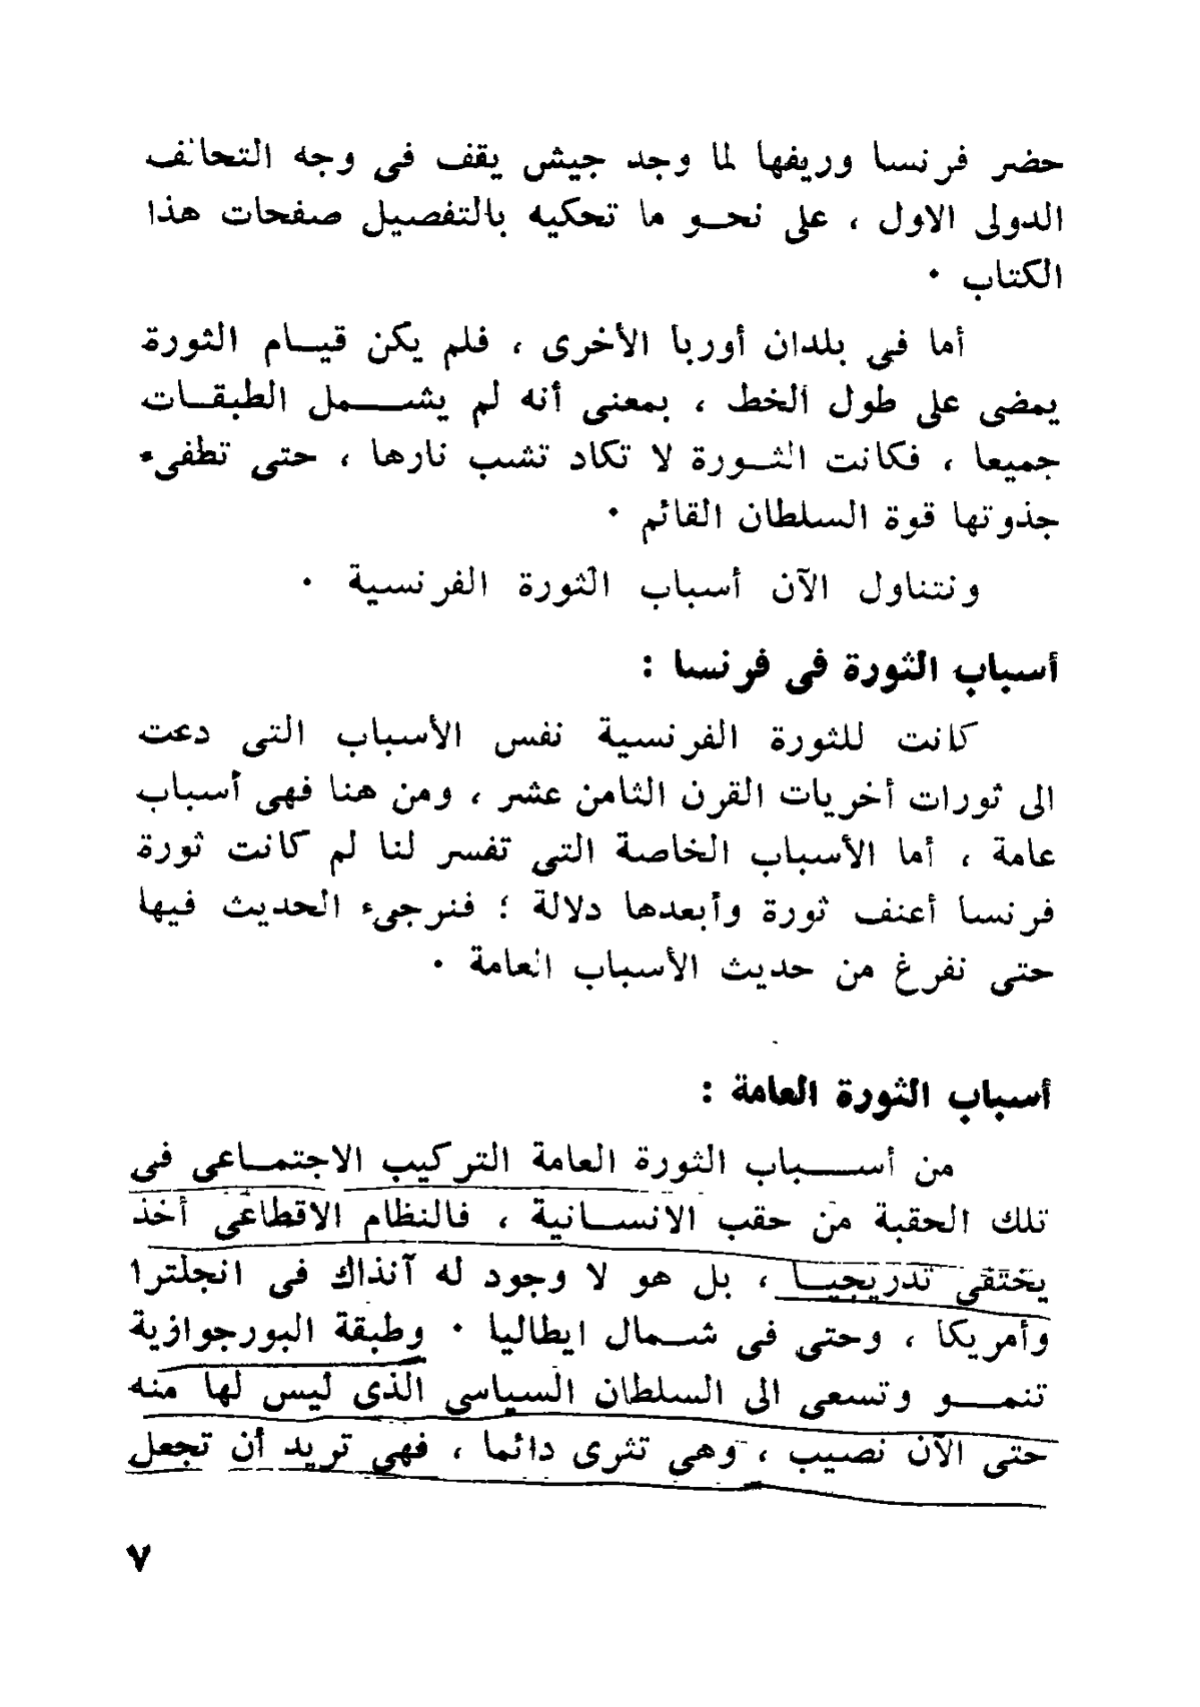 حضر فرنسا وريفها لما وجد جيش يقف فى وجه التحالف
الدولى الاول ، على نحــو ما تحكيه بالتفصيل صفحات هذا
الكتاب ٠
أما فى بلدان أوربا الأخرى ، فلم يكن قيــام الثورة
يمضى على طول الخط ، بمعنى أنه لم يشـــمل الطبقــات
جميعا ، فكانت الثــورة لا تكاد تشب نارها ، حتى تطفىء
جذوتها قوة السلطان القائم ٠
ونتناول الآن أسباب الثورة الفرنسية ٠
أسباب الثورة فى فرنسا :
كانت للثورة الفرنسية نفس الأسباب التى دعت
الى ثورات أخريات القرن الثامن عشر ، ومن هنا فهى أسباب
عامة ، أما الأسباب الخاصة التى تفسر لنا لم كانت ثورة
فرنسا أعنف ثورة وأبعدها دلالة ؛ فنرجىء الحديث فيها
حتى نفرغ من حديث الأسباب العامة ٠
أسباب الثورة العامة :
من أســــباب الثورة العامة التركيب الاجتمــاعى فى
تلك الحقبة من حقب الانســانية ، فالنظام الاقطاعى أخذ
يختفى تدريجيــا ، بل هو لا وجود له آنذاك فى انجلترا
وأمريكا ، وحتى فى شــمال ايطاليا ٠ وطبقة البورجوازية
تنمـــو وتسعى الى السلطان السياسى الذى ليس لها منه
حتى الآن نصيب ، وهى تثرى دائما ، فهى تريد أن تجعل
٧